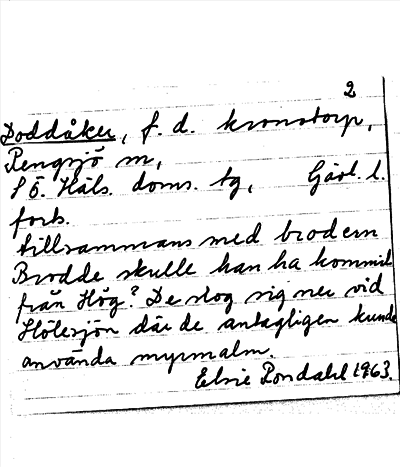 2
Doddåker, f. d. kronotorp,
Rengsjö sn,
S Ö. Häls. doms. tg, Gävl. l.
forts.
tillsammans med brodern
Brodde skulle han ha kommit
från Hög? De slog sig ner vid
Hölesjön där de antagligen kunde
använda myrmalm.
Elsie Rondahl 1963.